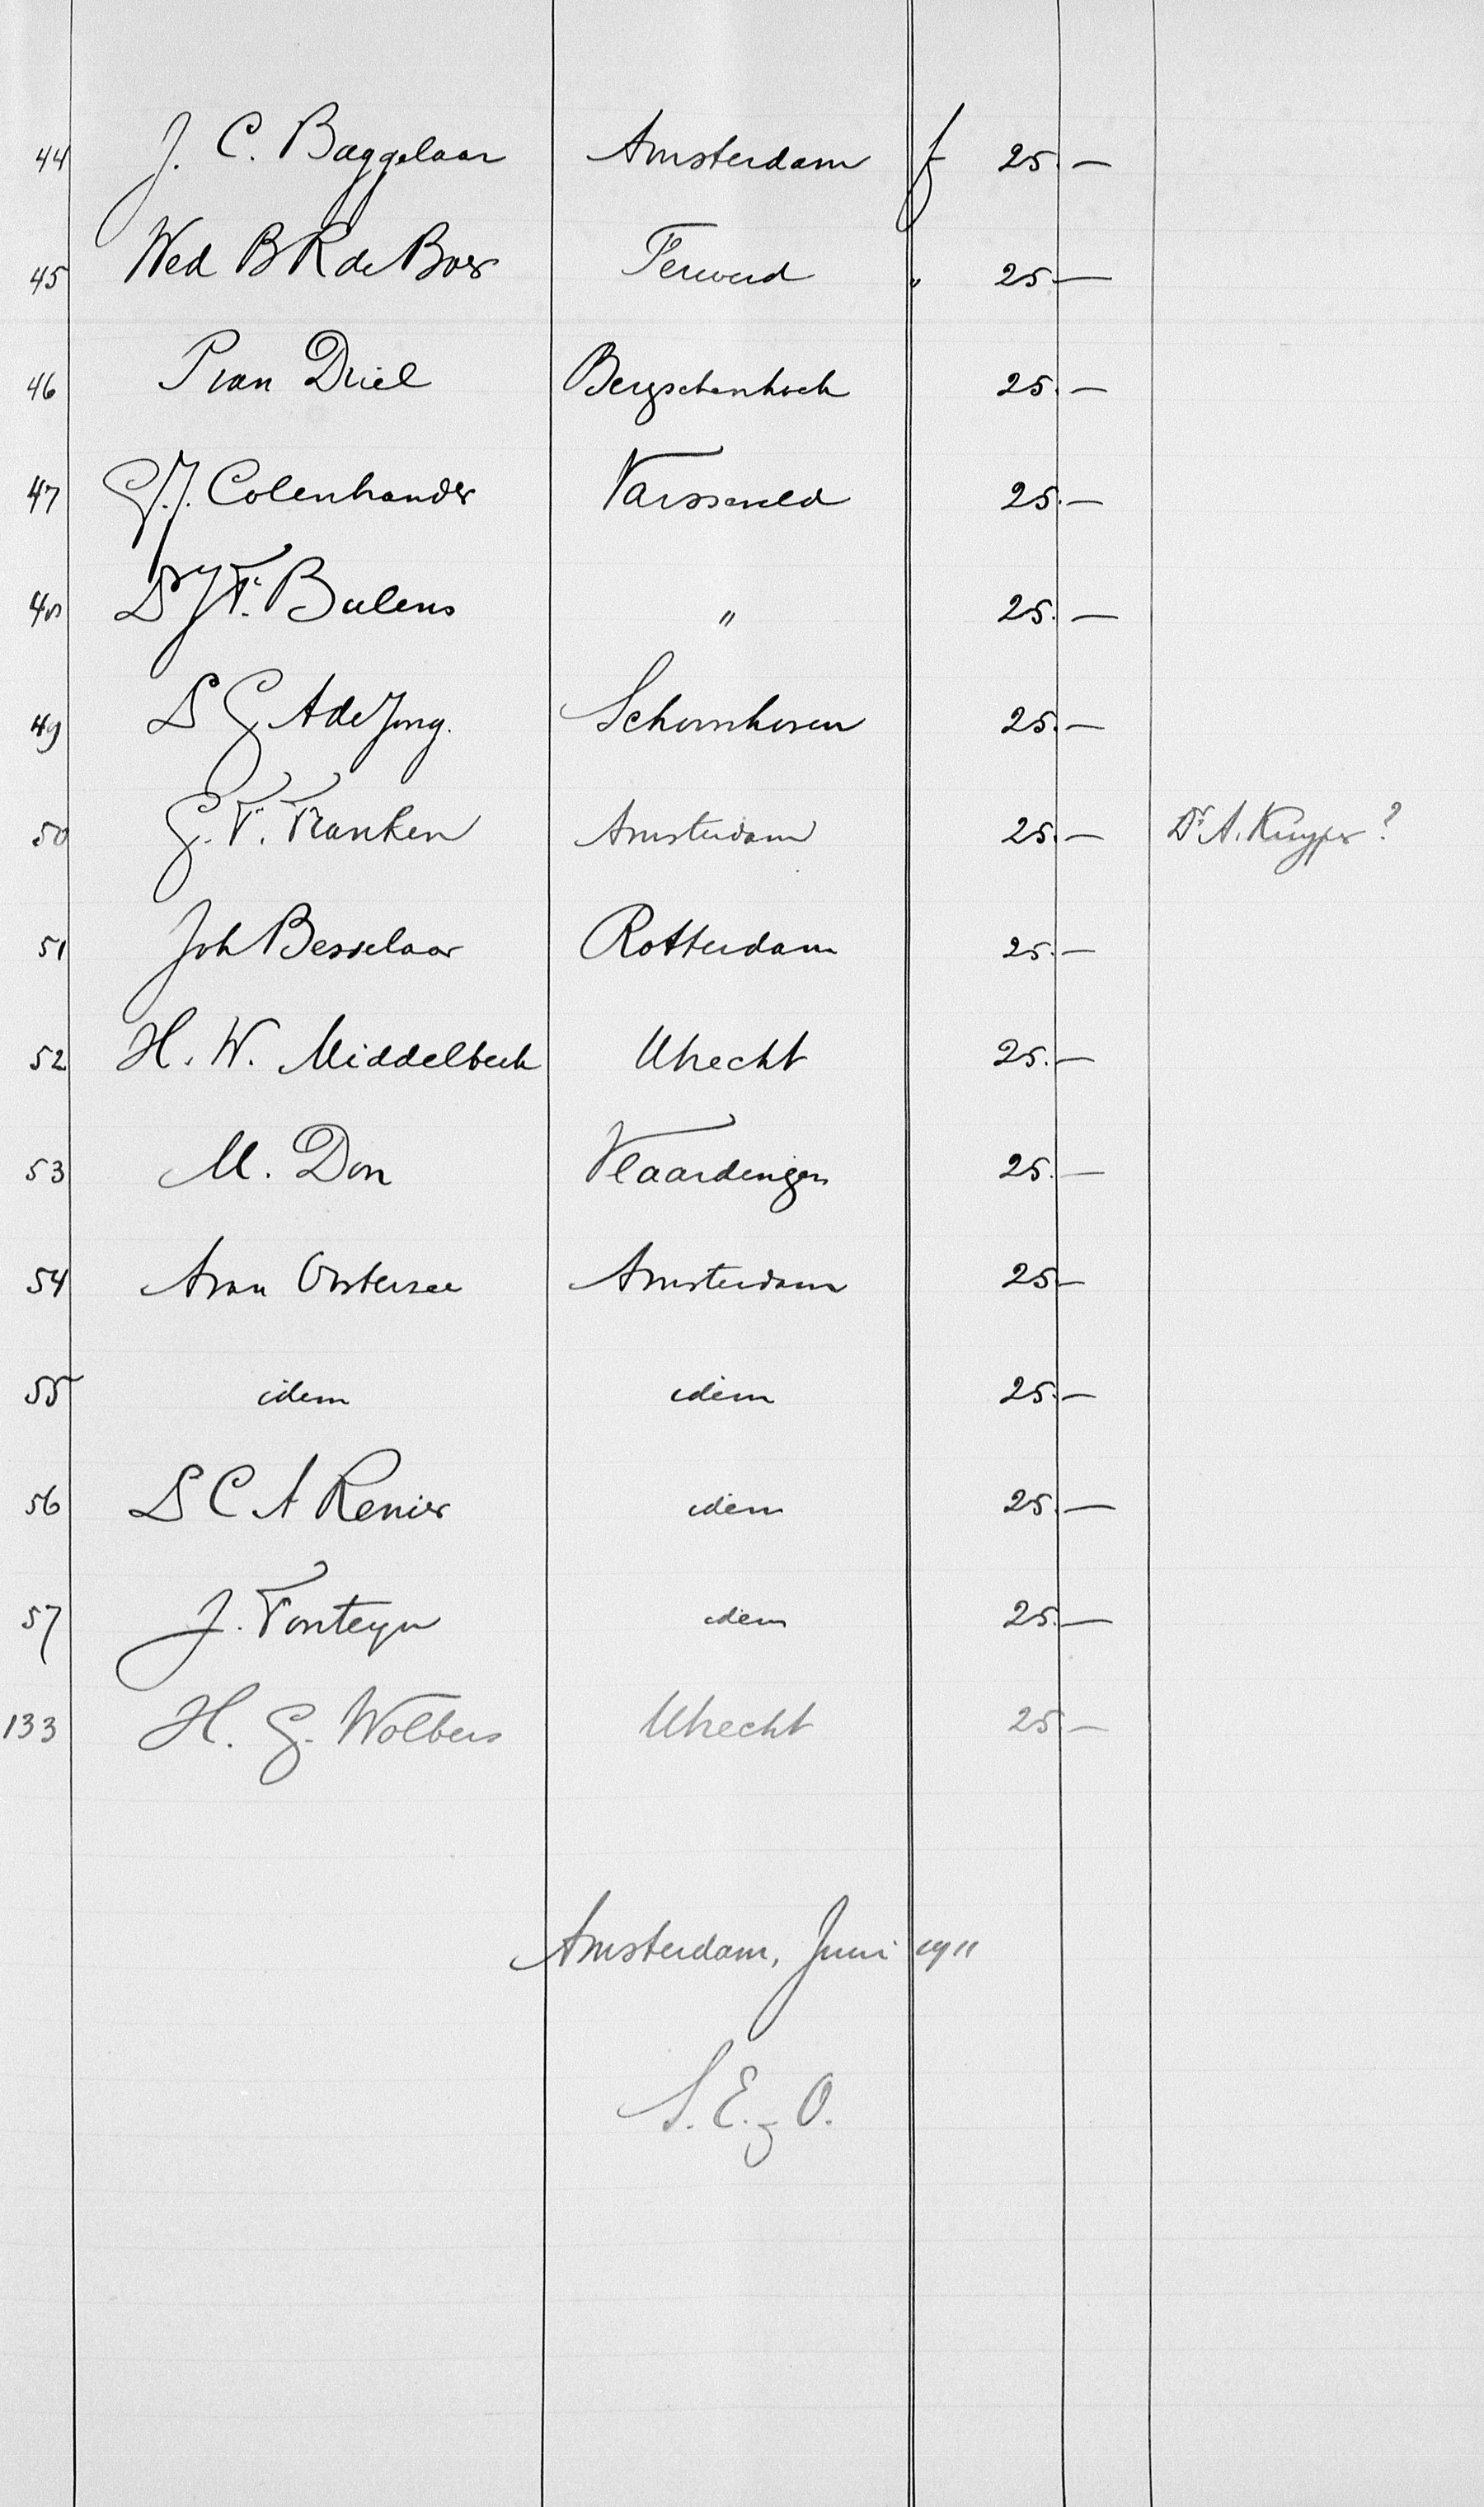 44 J. C. Baggelaar Amsterdam f 25.—
45 Wed B K de Boer Ferwerd " 25.—
46 P van Driel Bergschenhoek 25.—
47 G. J. Colenbrander Varsseveld 25.—
48 Ds J F. Bulens " 25.—
49 Ds G A de Jong. Schoonhoven 25.—
50 G. F. Franken Amsterdam 25.— Dr A. Kuyper?
51 Joh Besselaar Rotterdam 25.—
52 H. W. Middelbeek Utrecht 25.—
53 M. Don Vlaardingen 25.—
54 A van Oosterzee Amsterdam 25—
55 idem idem 25.—
56 Ds C A Renier idem 25.—
57 J. Fonteyn idem 25.—
133 H. G. Wolbers Utrecht 25—
Amsterdam, Juni 1911
S. E. & O.